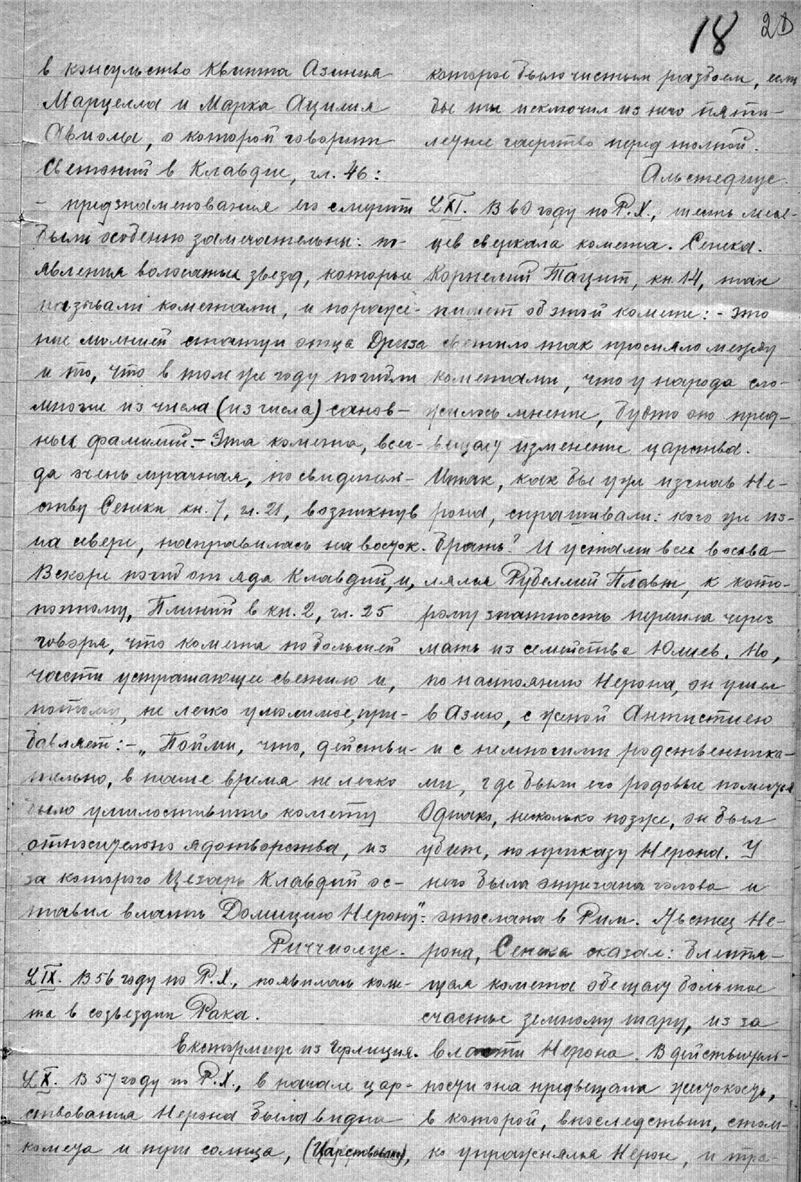 18 20
в консульство Квинта Азиния
Марцелла и Марка Ацилия
Авиолы, о которой говорит
Светоний в Клавдие, гл. 46:
– предзнаменования его смерти
были особенно замечательны: по-
явления волосатых звезд, которые
называли кометами, и пораже-
ние молнией статуи отца Друза
и то, что в том же году погибли
многие из числа (из числа) санов-
ных фамилий. – Эта комета, всег-
да очень мрачная, по свидетель-
ству Сенеки кн. 7, гл. 21, возникнув
на севере, направилась на восток.
Вскоре погиб от яда Клавдий, и,
поэтому, Плиний в кн. 2, гл. 25
говоря, что комета по большей
части устрашающее светило и,
потому, не легко умолимое, при-
бавляет: – „Пойми, что, действи-
тельно, в наше время не легко
было умилостивить комету
относительно ядотворства, из
за которого Цезарь Клавдий ос-
тавил власть Домицию Нерону“.
Риччиолус.
LIX. В 56 году по Р.Х., появилась коме-
та в созвездии Рака.
Экстормиус из Герлиция.
LX. В 57 году по Р.Х., в начале цар-
ствования Нерона была видна
комета и пути солнца, (Царствован),
которое было чистым разбоем, если
бы ты исключил из него пяти-
летие гаерства перед толпой.
Альстедиус.
LXI. В 60 году по Р.Х., шесть меся-
цев сверкала комета. Сенека.
Корнелий Тацит, кн. 14, так
пишет об этой комете: – Это
светило так просияло между
кометами, что у народа сло-
жилось мнение, будто оно пред-
вещало изменение царства.
Итак, как бы уже изгнав Не-
рона, спрашивали: кого уж из-
брать? И устами всех восхва-
лялся Рубеллий Плавт, к кото-
рому знатность перешла через
мать из семейства Юлиев. Но,
по настоянию Нерона, он ушел
в Азию, с женой Антистиею
и с немногими родственника-
ми, где были его родовые поместья
Однако, несколько позже, он был
убит, по приказу Нерона. У
него была отрезана голова и
отослана в Рим. Льстец Не-
рона, Сенека сказал: Блестя-
щая комета обещала большое
счастье земному шару, из за
власти Нерона. В действитель-
ности она предвещала жестокость,
в которой, впоследствии, столь-
ко упражнялся Нерон, и тра-